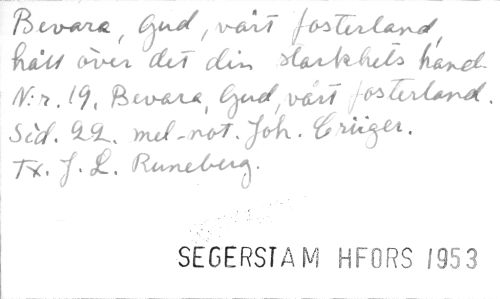 Bevara, Gud, vårt fosterland,
håll över det din starkhets hand
N:r. 19. Bevara, Gud, vårt fosterland.
Sid. 22. mel-not. Joh. Crüger.
Tx. J. L. Runeberg.
SEGERSTAM HFORS 1953